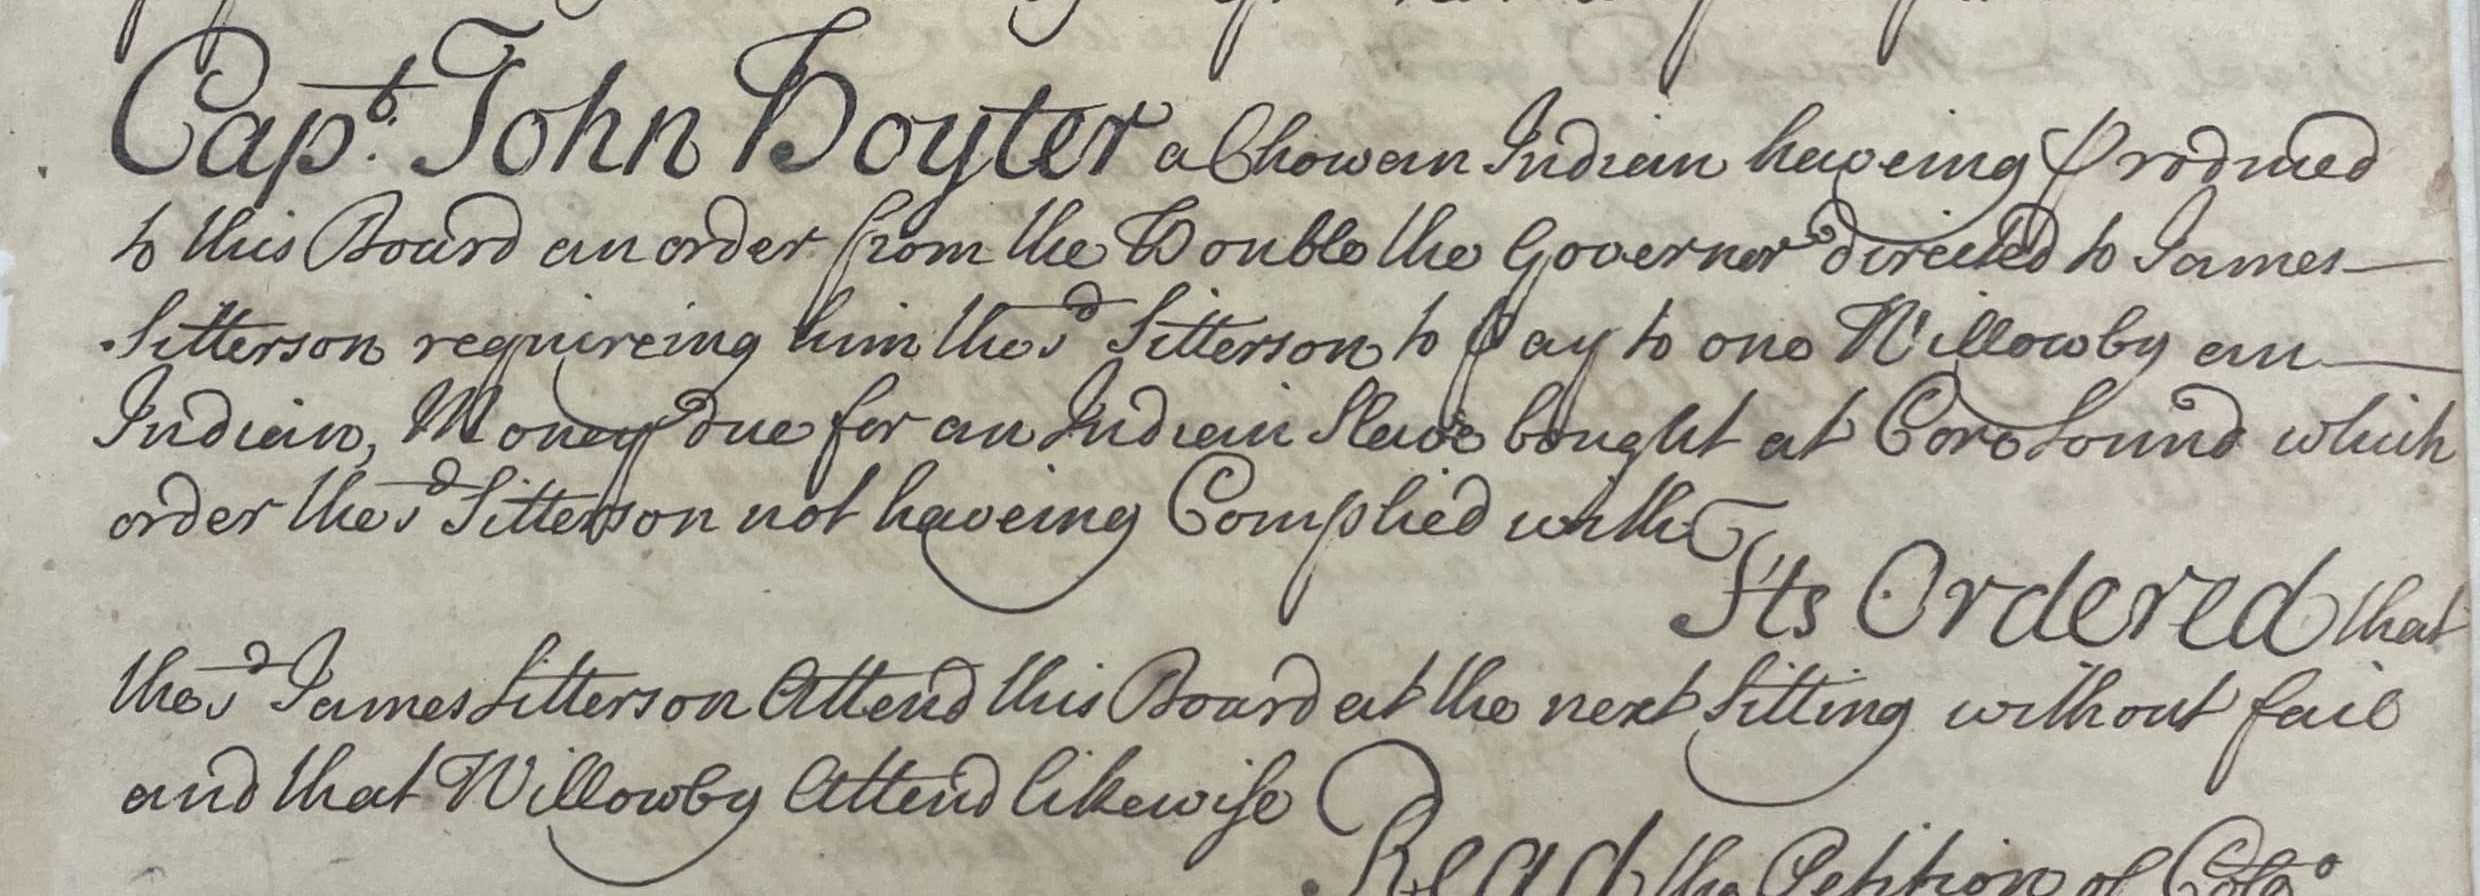 Capt. John Hoyter a Chowan Indian haveing Produced
to this Board an order from the Honble the Governor directed to James
Sitterson requireing him the sd Sitterson to pay to one Willowby an
Indian, Money due for an Indian Slave bought at Core Sound which
order the sd Sitterson not haveing Complied with
Its Ordered that
the sd James Sitterson Attend this Board at the next Sitting without fail
and that Willowby Attend likewise
Read the Petition of Colo